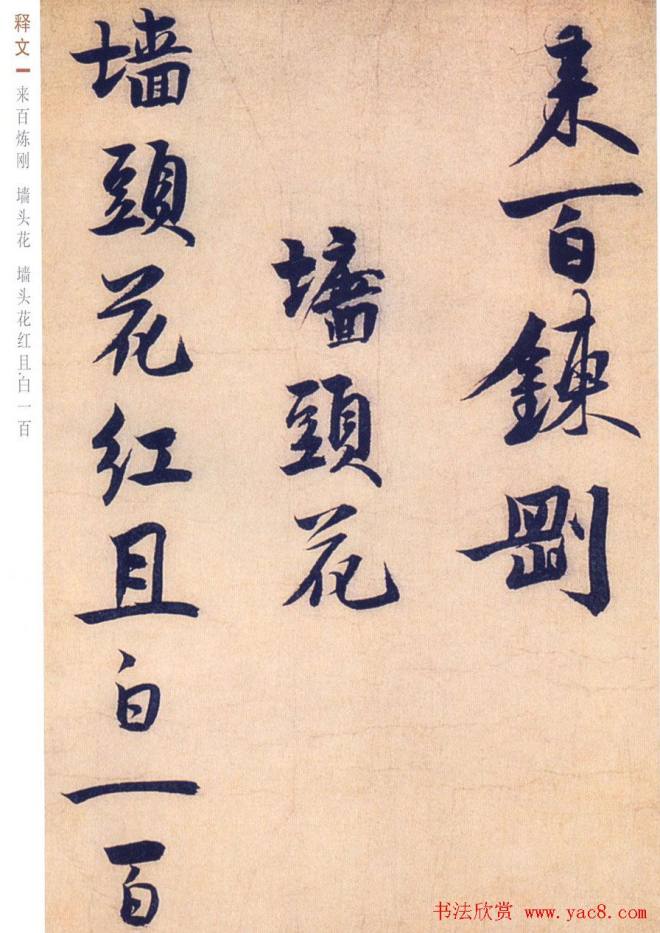 来百鍊剛
墙頭花
墙頭花红且白一百
释文
来百炼刚 墙头花 墙头花红且白一百
书法欣赏 www.yac8.com